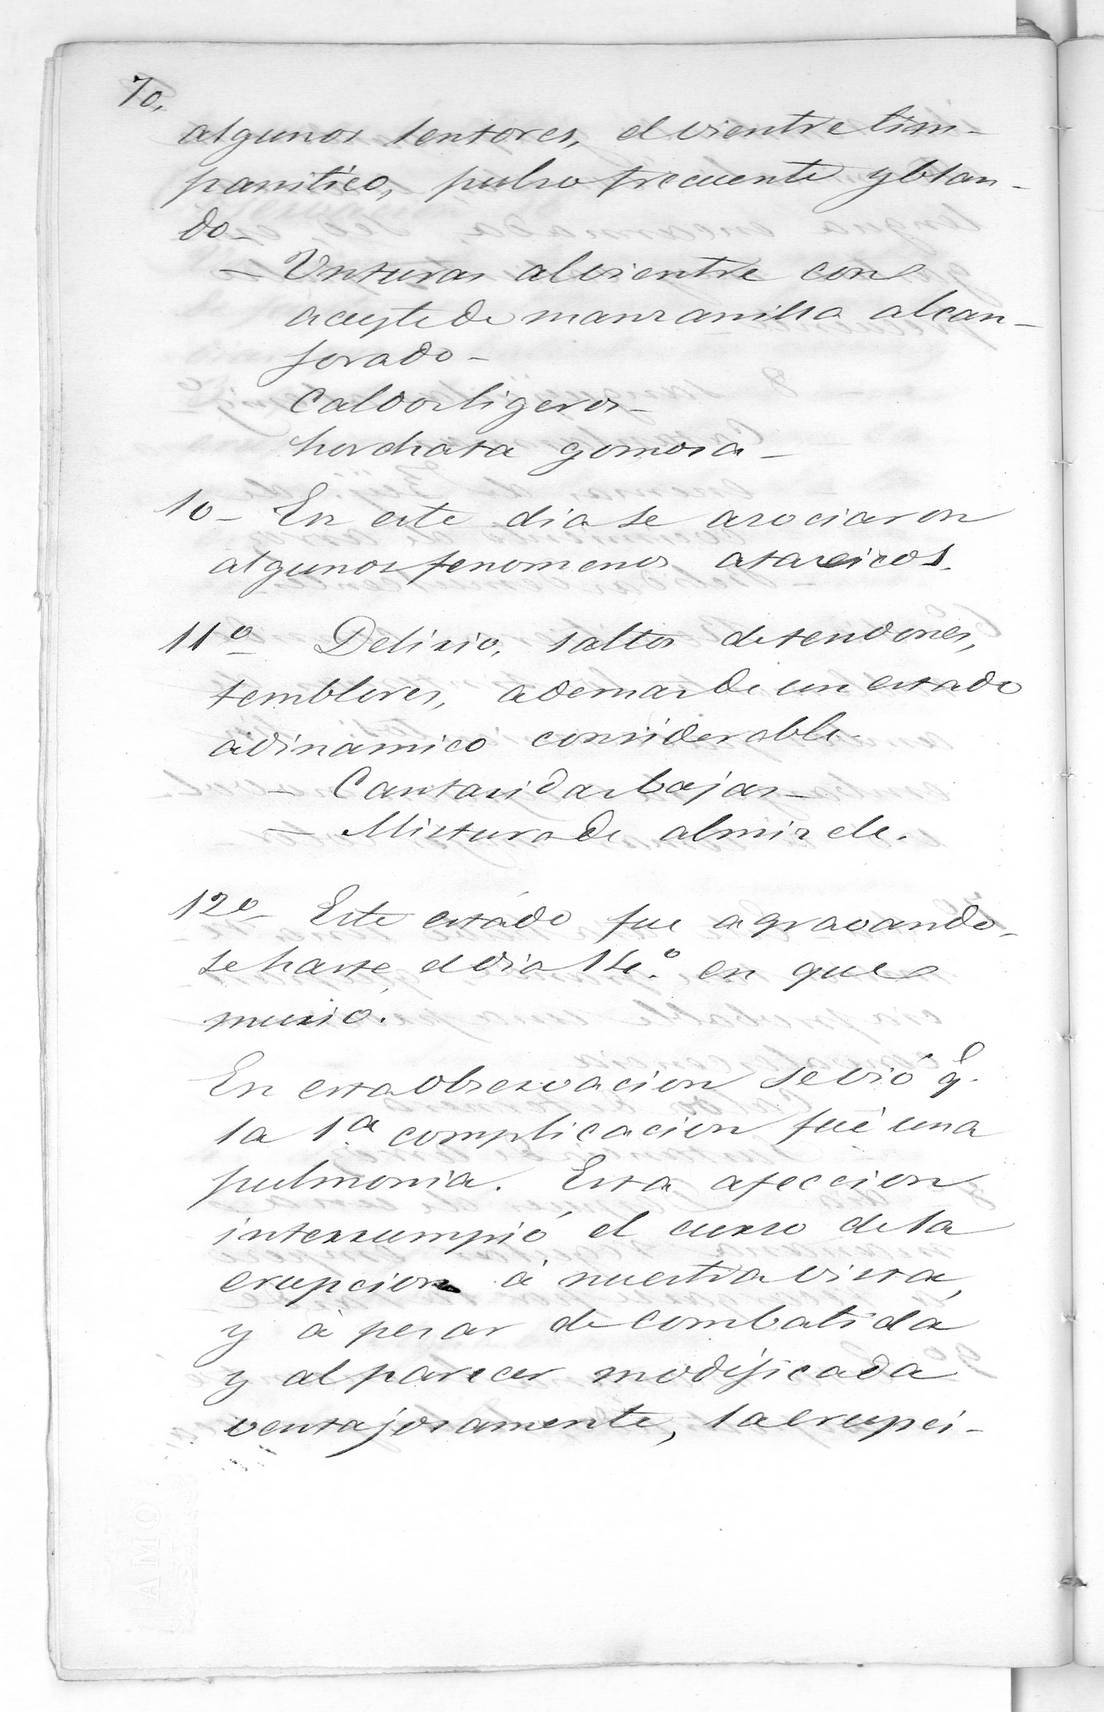 70.
algunos sentores, el vientre tim-
panitico, pulso frecuente y blan-
do-
- Unturas al vientre con
aceyte de manzanilla alcan-
forado-
Caldos ligeros-
horchata gomosa-
10- En este dia se asociaron
algunos fenomenos ataxicos.
11º Delirio, saltos de tendones,
temblores, ademas de un estado
adinamico considerable.
- Cantaridas bajas-
- Mistura de almizcle.
12º- Este estádo fue agravando-
se haste el dia 14º. en que
murió.
En esta observacion se vió q.
la 1ª complicacion fué una
pulmonia. Esta afeccion
interrumpió el curso de la
erupcion à nuestra vista,
y à pesar de combatida
y al parecer modificada
ventajosamente, la erupci-
AMO